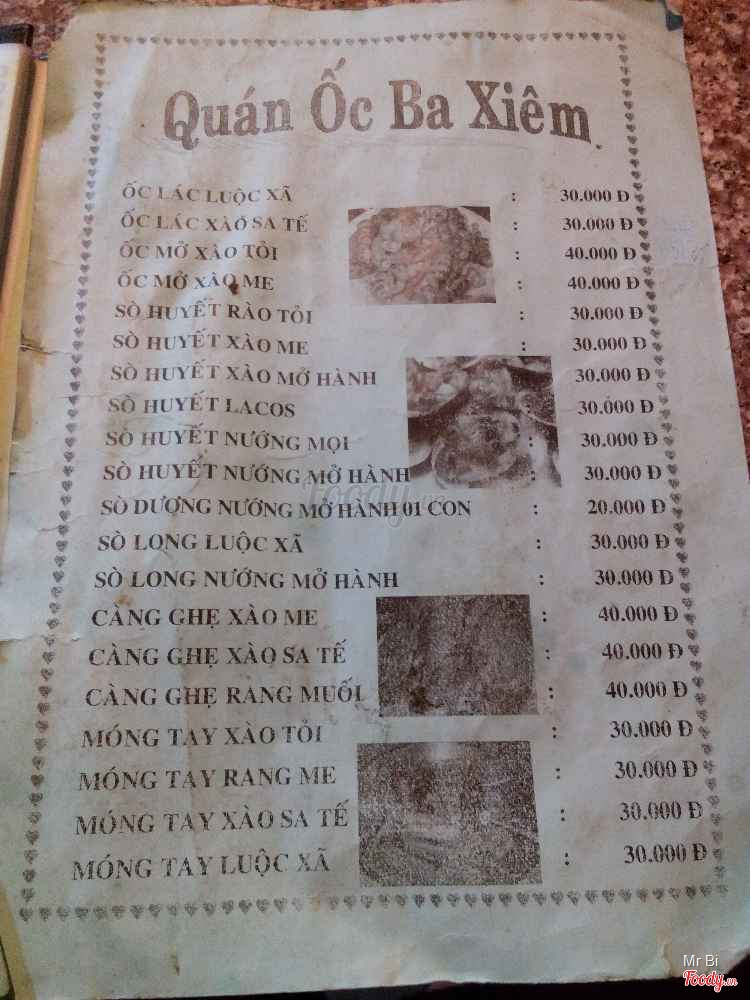 Quán Ốc Ba Xiêm
ỐC LÁC LUỘC XÃ : 30.000 Đ
ỐC LÁC XÀO SA TẾ : 30.000 Đ
ỐC MỞ XÀO TỎI : 40.000 Đ
ỐC MỞ XÀO ME : 40.000 Đ
SÒ HUYẾT RÀO TỎI : 30.000 Đ
SÒ HUYẾT XÀO ME : 30.000 Đ
SÒ HUYẾT XÀO MỞ HÀNH 30.000 Đ
SÒ HUYẾT LACOS 30.000 Đ
SÒ HUYẾT NƯỚNG MỌI : 30.000 Đ
SÒ HUYẾT NƯỚNG MỞ HÀNH : 30.000 Đ
SÒ DƯỢNG NƯỚNG MỞ HÀNH 01 CON : 20.000 Đ
SÒ LONG LUỘC XÃ : 30.000 Đ
SÒ LONG NƯỚNG MỞ HÀNH : 30.000 Đ
CÀNG GHẸ XÀO ME : 40.000 Đ
CÀNG GHẸ XÀO SA TẾ : 40.000 Đ
CÀNG GHẸ RANG MUỐI : 40.000 Đ
MÓNG TAY XÀO TỎI : 30.000 Đ
MÓNG TAY RANG ME : 30.000 Đ
MÓNG TAY XÀO SA TẾ : 30.000 Đ
MÓNG TAY LUỘC XÃ : 30.000 Đ
Foody.vn
Mr Bi
Foody.vn